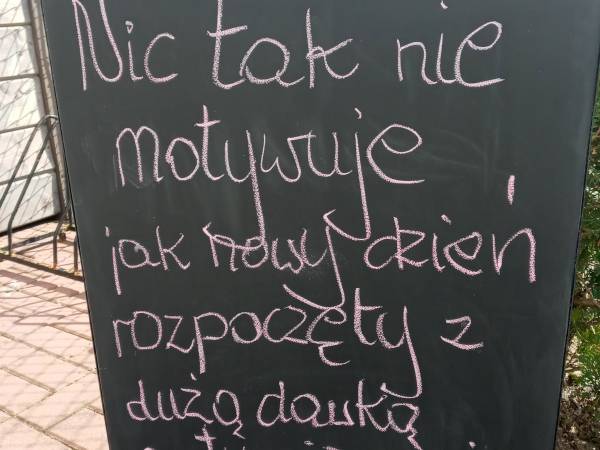 Nic tak nie
motywuje
jak nowy dzień
rozpoczęty z
dużą dawką